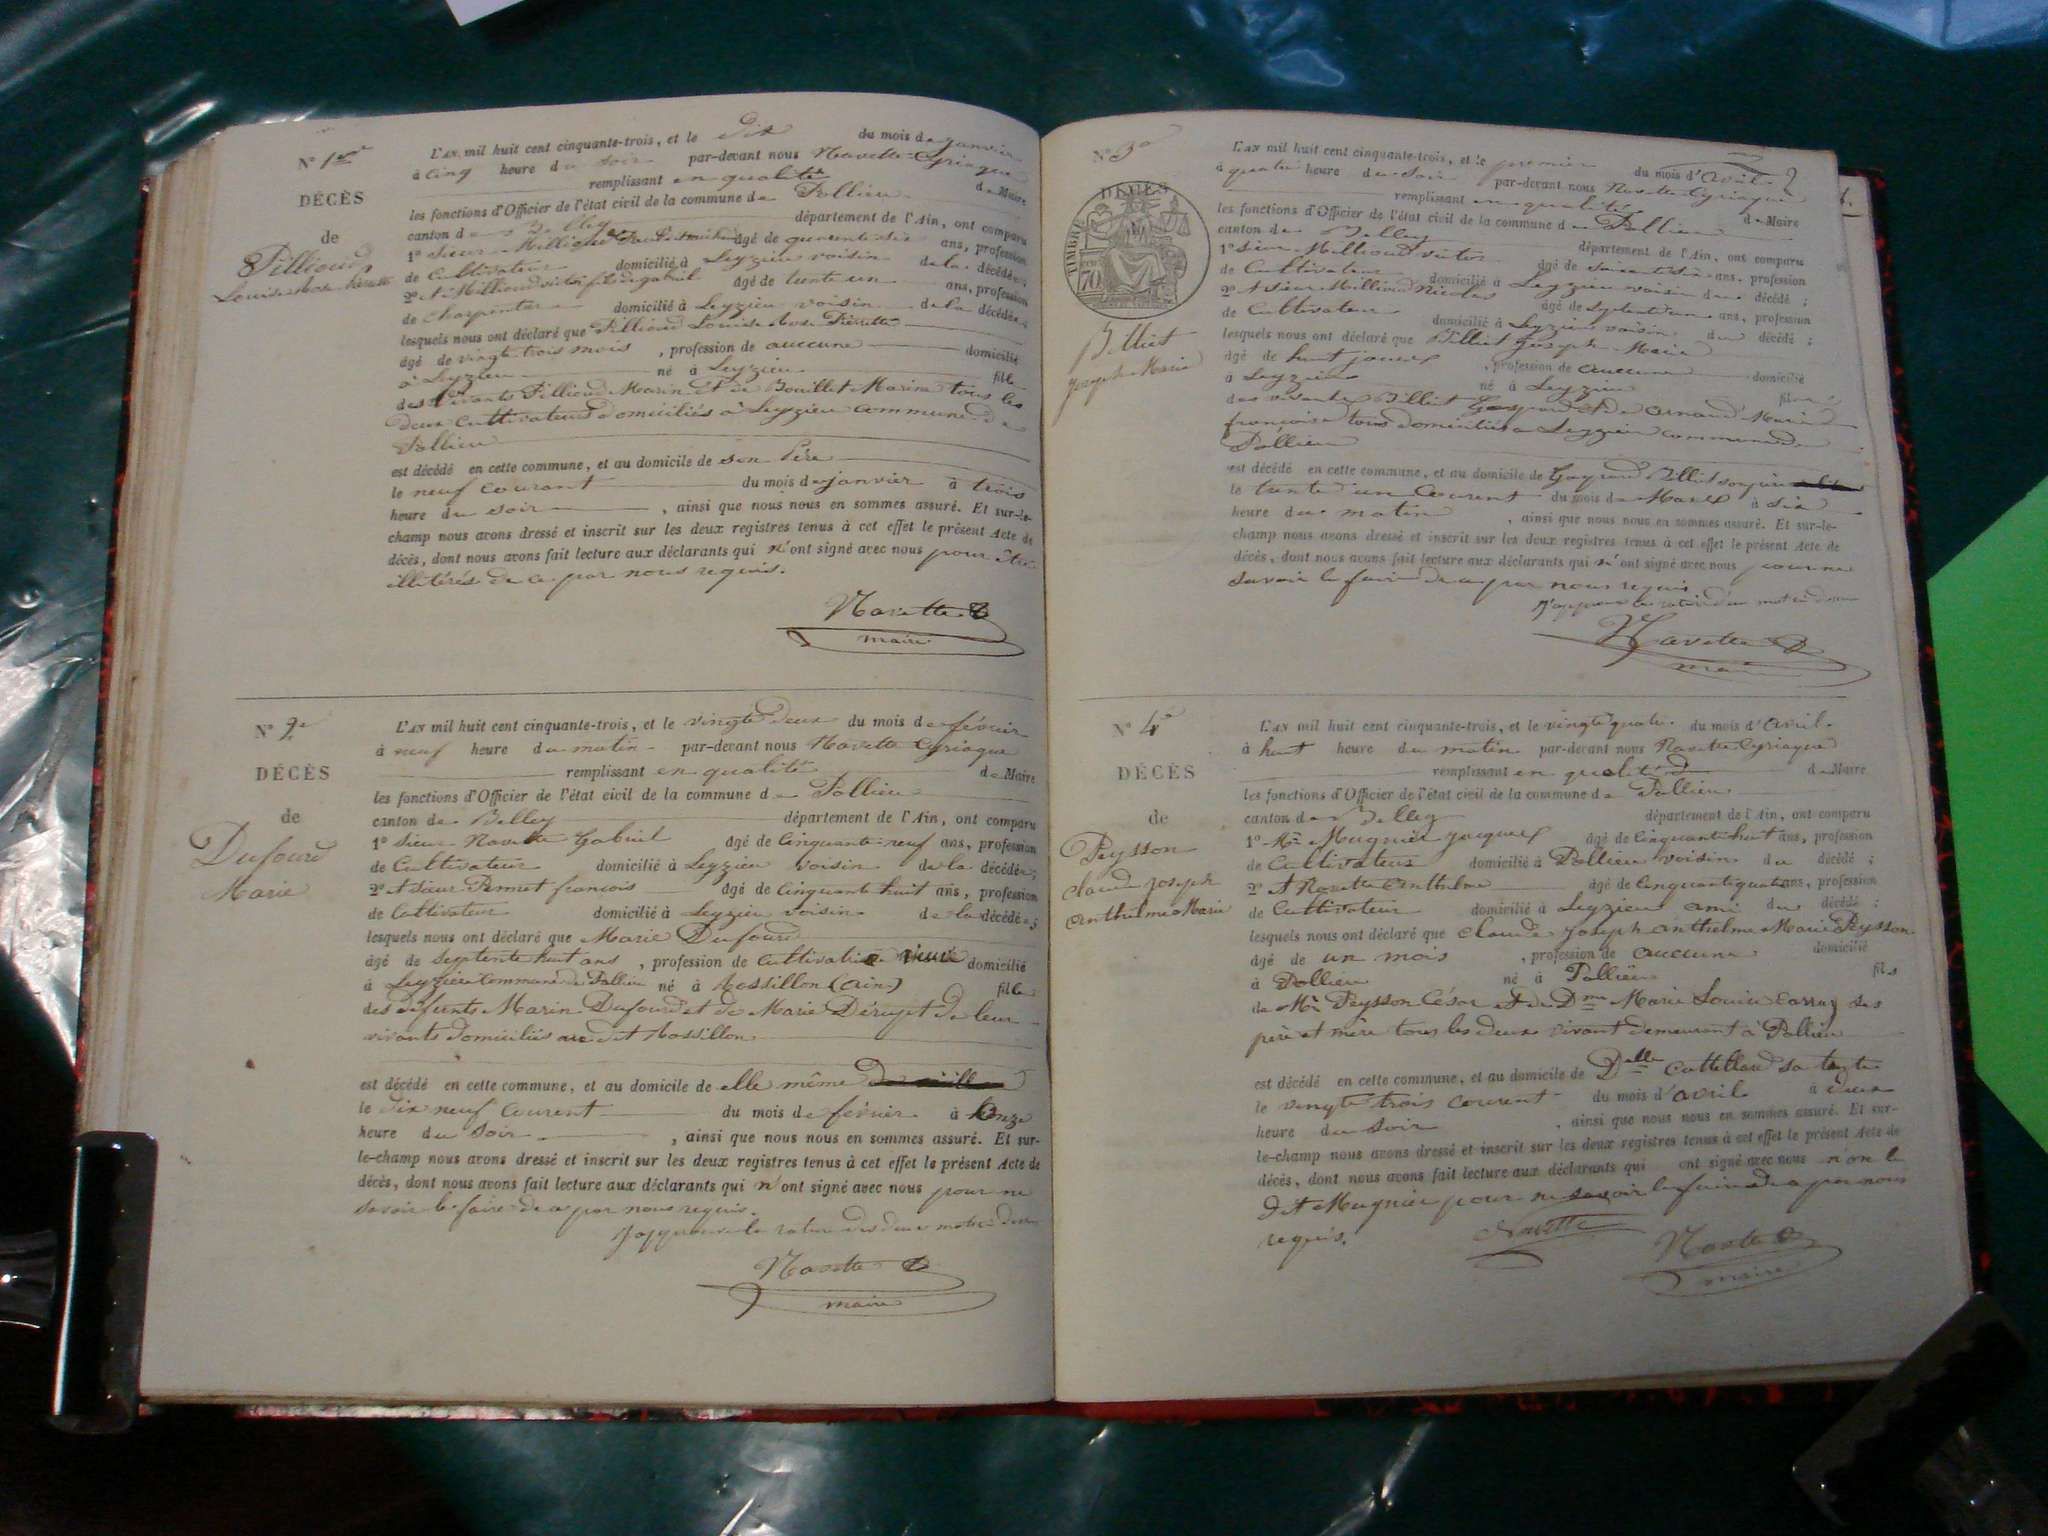 N° 1er
DÉCÈS
de
Pillioud
Louise Rose Pierrette
L'AN mil huit cent cinquante-trois, et le Dix du mois de janvier
à cinq heure du soir par-devant nous Navette Cyriaque
remplissant en qualité de Maire
les fonctions d'Officier de l'état civil de la commune de Pollieu
canton de Belley département de l'Ain, ont comparu
1° sieur Millioud âgé de quarente six ans, profession
de Cultivateur domicilié à Leyzieu voisin de la décédée;
2° et Millioud victor fils de gabriel âgé de trente un ans, profession
de charpentier domicilié à Leyzieu voisin de la décédée;
lesquels nous ont déclaré que Pillioud Louise Rose Pierrette
âgé de vingt trois mois, profession de auccune domicilié
à Leyzieu né à Leyzieu fille
des vivants Pillioud Marin et de Bouillet Marine tous les
deux cultivateurs domiciliés à Leyzieu commune de
Pollieu
est décédé en cette commune, et au domicile de son Père
le neuf courant du mois de janvier à trois
heure du soir, ainsi que nous nous en sommes assuré. Et sur-le-
champ nous avons dressé et inscrit sur les deux registres tenus à cet effet le présent Acte de
décès, dont nous avons fait lecture aux déclarants qui n'ont signé avec nous pour être
illitérés de ce par nous requis.
Navette
maire
N° 2e
DÉCÈS
de
Dufourd
Marie
L'AN mil huit cent cinquante-trois, et le vingte deux du mois de février
à neuf heure du matin par-devant nous Navette Cyriaque
remplissant en qualité de Maire
les fonctions d'Officier de l'état civil de la commune de Pollieu
canton de Belley département de l'Ain, ont comparu
1° sieur Navette Gabriel âgé de cinquante-neuf ans, profession
de Cultivateur domicilié à Leyzieu voisin de la décédée;
2° et sieur Pernet françois âgé de cinquante huit ans, profession
de Cultivateur domicilié à Leyzieu voisin de la décédée;
lesquels nous ont déclaré que Marie Dufourd
âgé de septente huit ans, profession de cultivatrice veuve domicilié
à Leyzieu commune de Pollieu né à Rossillon (ain) fille
des défunts Marin Dufourd et de Marie Dérupt de leur
vivants domiciliés au dit Rossillon
est décédé en cette commune, et au domicile de elle même
le dix neuf courent du mois de février à onze
heure du soir, ainsi que nous nous en sommes assuré. Et sur-
le-champ nous avons dressé et inscrit sur les deux registres tenus à cet effet le présent Acte de
décès, dont nous avons fait lecture aux déclarants qui n'ont signé avec nous pour ne
savoir le faire de ce par nous requis.
J'approuve la rature des deux mots
Navette
maire
N° 3e
TIMBRE
DIMES
70
Billiet
Joseph Marie
L'AN mil huit cent cinquante-trois, et le premier du mois d'avril
à quatre heure du soir par-devant nous Navette Cyriaque
remplissant en qualité de Maire
les fonctions d'Officier de l'état civil de la commune de Pollieu
canton de Belley département de l'Ain, ont comparu
1° sieur Millioud victor âgé de soixante six ans, profession
de Cultivateur domicilié à Leyzieu voisin du décédé;
2° et sieur Millioud Nicolas âgé de septente ans, profession
de Cultivateur domicilié à Leyzieu voisin du décédé;
lesquels nous ont déclaré que Billiet Joseph Marie
âgé de huit jours, profession de auccune domicilié
à Leyzieu né à Leyzieu fils
des vivants Billiet Gaspard et de Arnaud Marie
françoise tous domiciliés à Leyzieu commune de
Pollieu
est décédé en cette commune, et au domicile de Gaspard Billiet son père
le trente un courent du mois de Mars à six
heure du matin, ainsi que nous nous en sommes assuré. Et sur-le-
champ nous avons dressé et inscrit sur les deux registres tenus à cet effet le présent Acte de
décès, dont nous avons fait lecture aux déclarants qui n'ont signé avec nous pour ne
savoir le faire de ce par nous requis
J'approuve la rature d'un mot
Navette
maire
N° 4e
DÉCÈS
de
Peysson
claude joseph
anthelme Marie
L'AN mil huit cent cinquante-trois, et le vingte quatre du mois d'avril
à huit heure du matin par-devant nous Navette Cyriaque
remplissant en qualité de Maire
les fonctions d'Officier de l'état civil de la commune de Pollieu
canton de Belley département de l'Ain, ont comparu
1° Mr Mugnier jacques âgé de cinquante huit ans, profession
de Cultivateur domicilié à Pollieu voisin du décédé;
2° et Navette Anthelme âgé de cinquante quatre ans, profession
de Cultivateur domicilié à Leyzieu ami du décédé;
lesquels nous ont déclaré que claude joseph anthelme Marie Peysson
âgé de un mois, profession de auccune domicilié
à Pollieu né à Pollieu fils
de Mr Peysson César et de Dme Marie Louise Carrus ses
père et mère tous les deux vivant demeurant à Pollieu
est décédé en cette commune, et au domicile de Delle Cattelland sa tente
le vingte trois courent du mois d'avril à deux
heure du soir, ainsi que nous nous en sommes assuré. Et sur-
le-champ nous avons dressé et inscrit sur les deux registres tenus à cet effet le présent Acte de
décès, dont nous avons fait lecture aux déclarants qui ont signé avec nous non le
dit Mugnier pour ne savoir le faire de ce par nous
requis.
Navette
Navette
maire